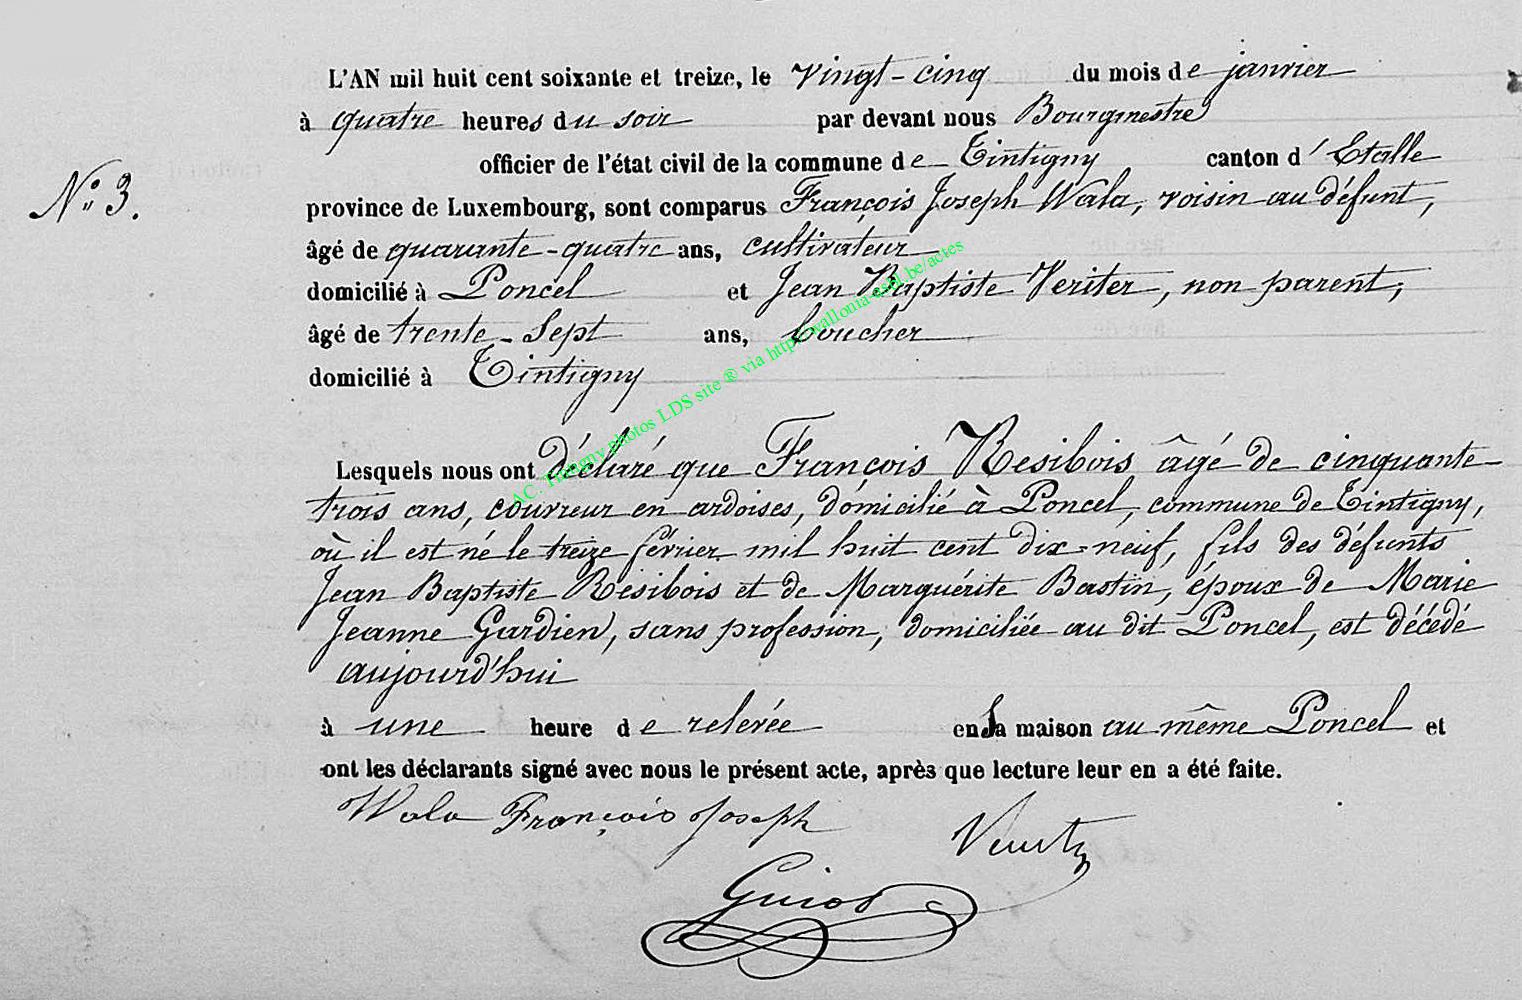 L'AN mil huit cent soixante et treize, le vingt-cinq du mois de janvier
à quatre heures du soir par devant nous Bourgmestre
officier de l'état civil de la commune de Tintigny canton d'Etalle
N° 3.
province de Luxembourg, sont comparus François Joseph Wala, voisin au défunt,
âgé de quarante-quatre ans, cultivateur
domicilié à Poncel et Jean Baptiste Veriter, non parent,
âgé de trente-sept ans, boucher
domicilié à Tintigny
AC. Tintigny photos LDS site ® via http://wallonia-asbl.be/actes
Lesquels nous ont déclaré que François Resibois âgé de cinquante
trois ans, couvreur en ardoises, domicilié à Poncel, commune de Tintigny,
où il est né le treize février mil huit cent dix-neuf, fils des défunts
Jean Baptiste Résibois et de Marguérite Bastin, époux de Marie
Jeanne Gardien, sans profession, domiciliée au dit Poncel, est décédé
aujourd'hui
à une heure de relevée en sa maison au même Poncel et
ont les déclarants signé avec nous le présent acte, après que lecture leur en a été faite.
Wala François Joseph
Guiot